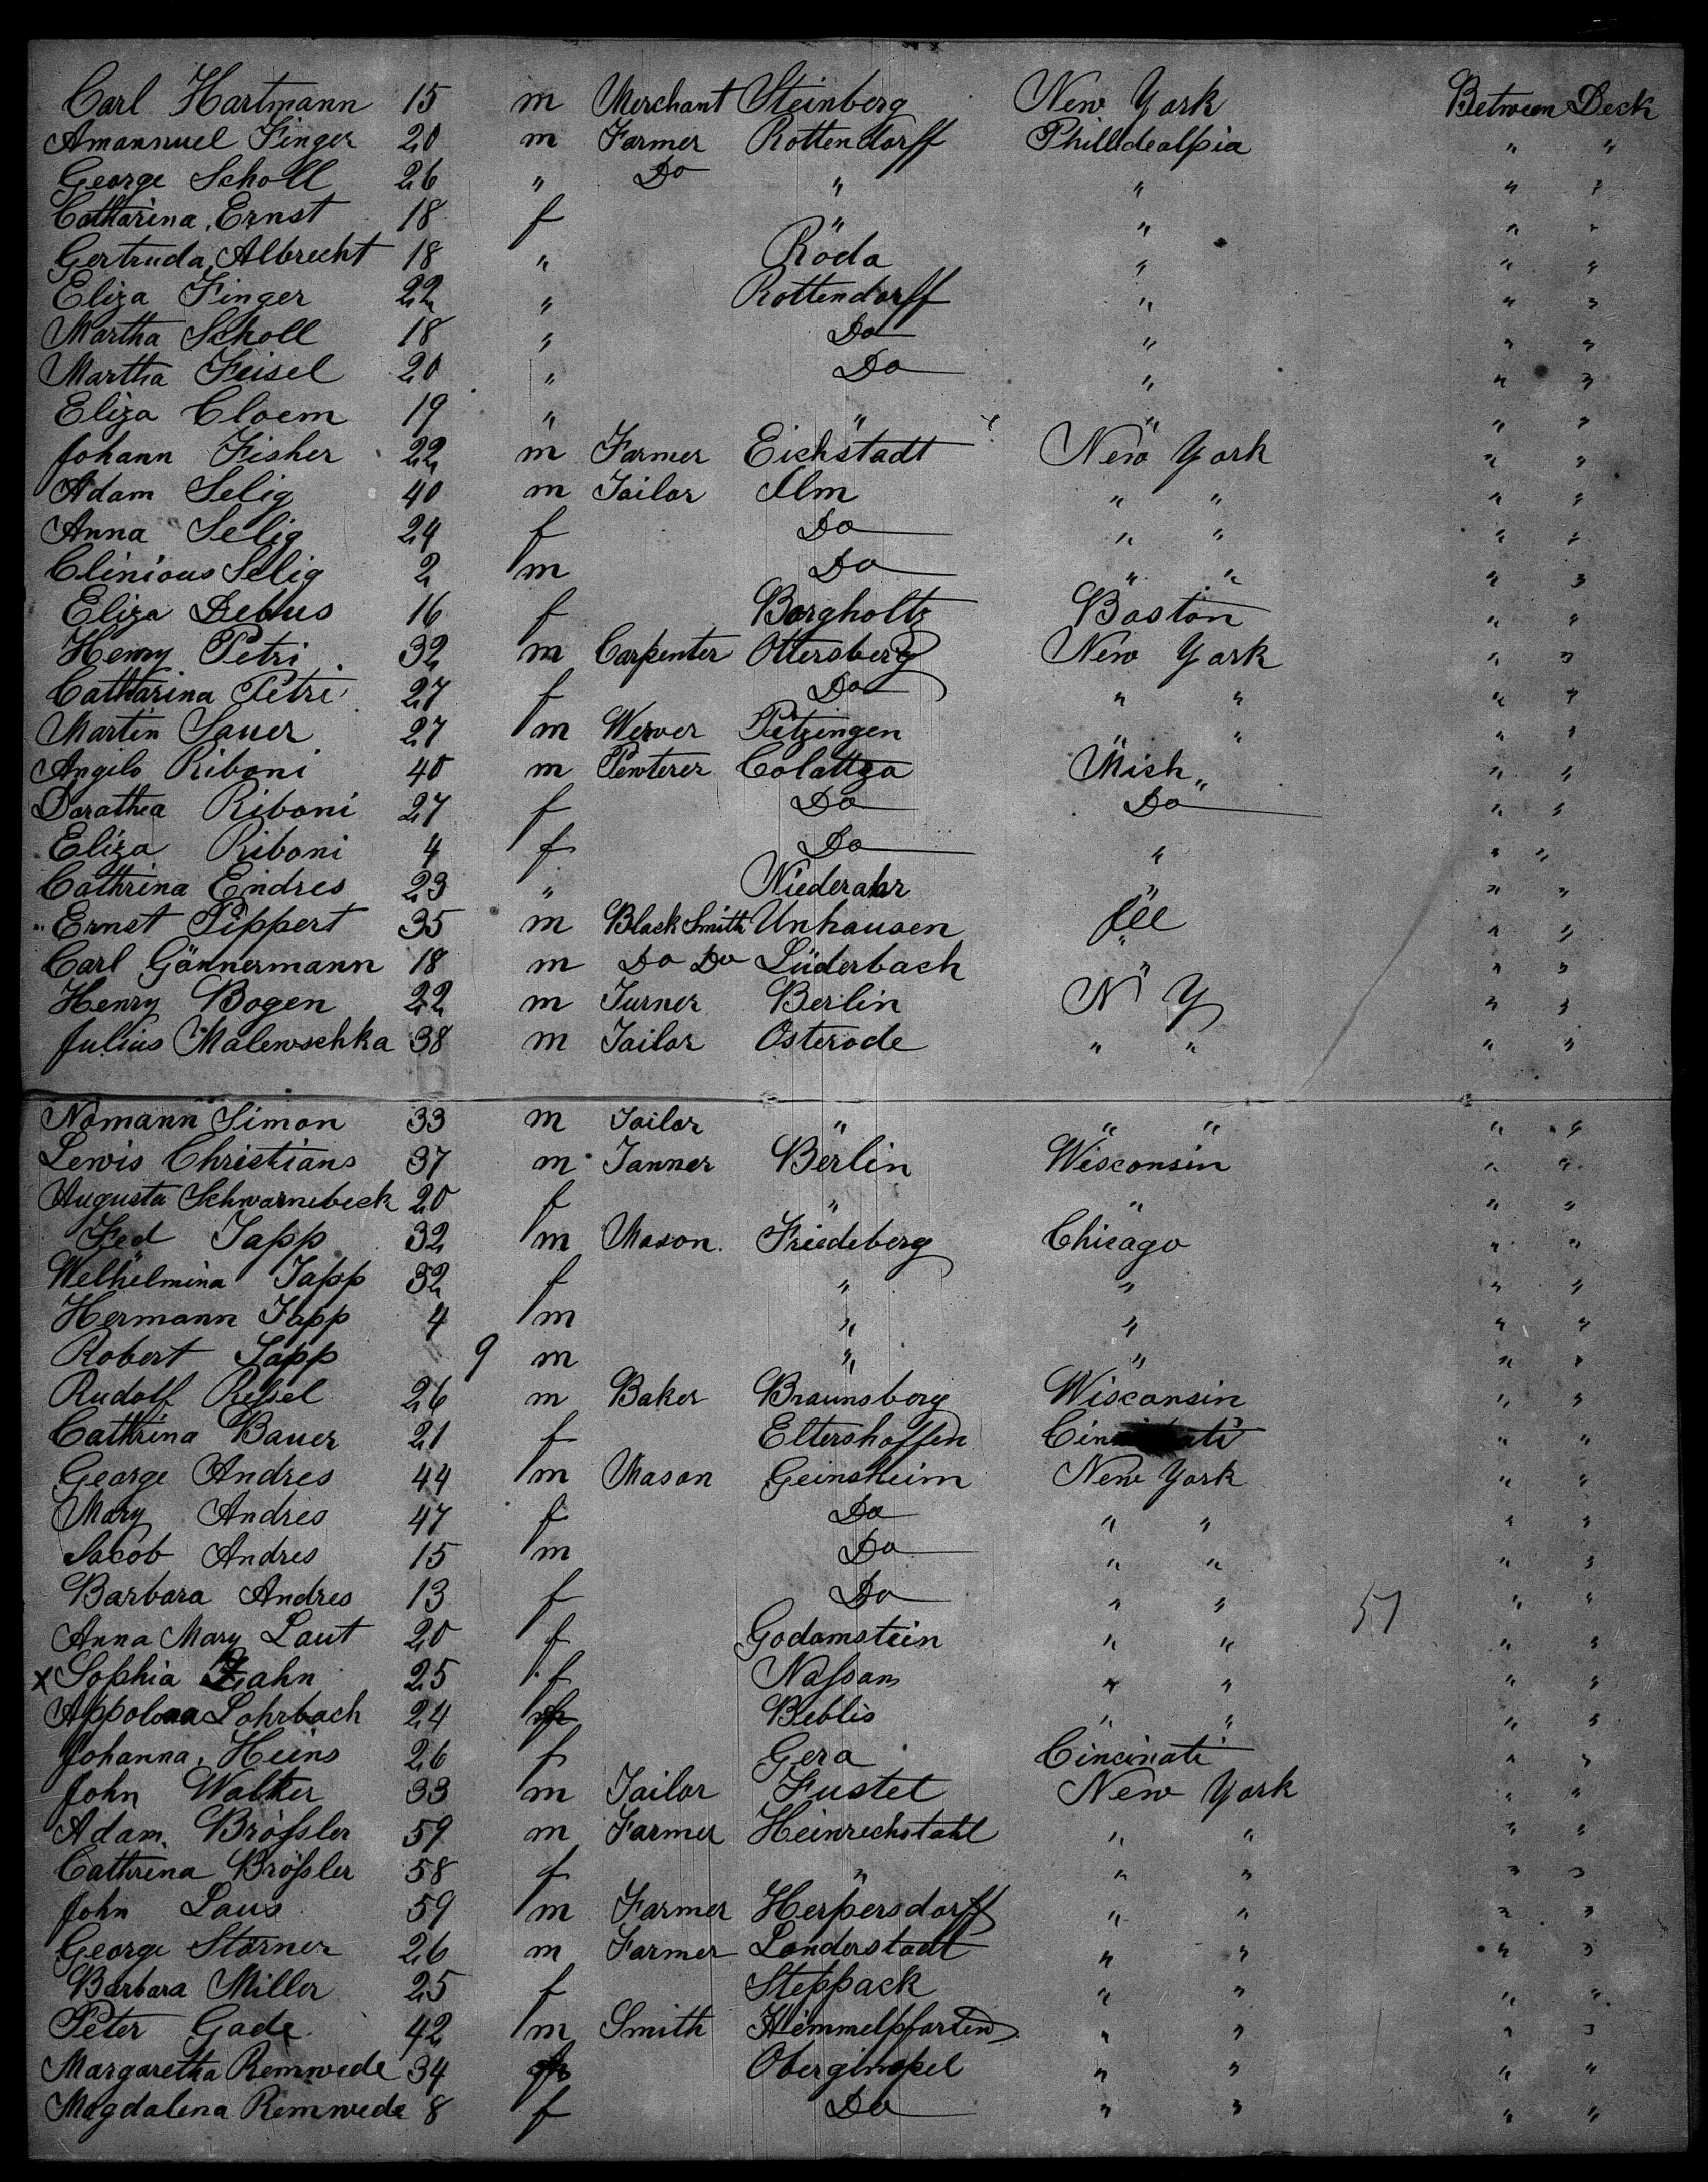 Carl Hartmann 15 m Merchant Steinberg New York Between Deck
Amannuel Finger 20 m Farmer Rottendorff Philldealpia " "
George Scholl 26 " Do " " " "
Catharina Ernst 18 f " " " "
Gertruda Albrecht 18 " Roda " " "
Eliza Finger 22 " Rottendorff " " "
Martha Scholl 18 " Do " " "
Martha Feisel 20 " Do " " "
Eliza Cloem 19 " " " " "
Johann Fisher 22 m Farmer Eichstadt New York " "
Adam Selig 40 m Tailor Ulm " " " "
Anna Selig 24 f Do " " " "
Clinious Selig 2 m Do " " " "
Eliza Debus 16 f Borgholtz Boston " "
Henry Petri 32 m Carpenter Ottersberg New York " "
Catharina Petri 27 f Do " " " "
Martin Sauer 27 m Wewer Pitzingen " " " "
Angilo Riboni 40 m Pewterer Colattza Mich " "
Dorathea Riboni 27 f Do Do " "
Eliza Riboni 4 f Do " " "
Cathrina Endres 23 " Niederahr " " "
Ernst Pippert 35 m Black Smith Unhausen Ill " "
Carl Gönnermann 18 m Do Do Lüderbach " " "
Henry Bogen 22 m Turner Berlin N Y " "
Julius Malewschka 38 m Tailor Osterode " " " "
Nomann Simon 33 m Tailor " " " " "
Lewis Christians 37 m Tanner Berlin Wisconsin " "
Augusta Schwarnebeck 20 f " " " "
Fed Tapp 32 m Mason Friedeberg Chicago " "
Welhelmina Tapp 32 f " " " "
Hermann Tapp 4 m " " " "
Robert Tapp 9 m " " " "
Rudolf Ressel 26 m Baker Braunsberg Wisconsin " "
Cathrina Bauer 21 f Eltershoffen " "
George Andres 44 m Mason Geinsheim New York " "
Mary Andres 47 f Do " " " "
Jacob Andres 15 m Do " " " "
Barbara Andres 13 f Do " " 51 " "
Anna Mary Laut 20 f Godamstein " " " "
x Sophia Zahn 25 f Nassau " " " "
Appolona Lohrbach 24 f Beblis " " " "
Johanna Heins 26 f Gera Cincinati " "
John Walker 33 m Tailor Fustel New York " "
Adam Brössler 59 m Farmer Heinrechstahl " " " "
Cathrina Brössler 58 f " " " " "
John Laus 59 m Farmer Herpersdorff " " " "
George Störner 26 m Farmer Londerstadt " " " "
Barbara Miller 25 f Steppack " " " "
Peter Gade 42 m Smith Himmelpforten " " " "
Margaretha Remwede 34 f Obergimpel " " " "
Magdalena Remwede 8 f Do " " " "